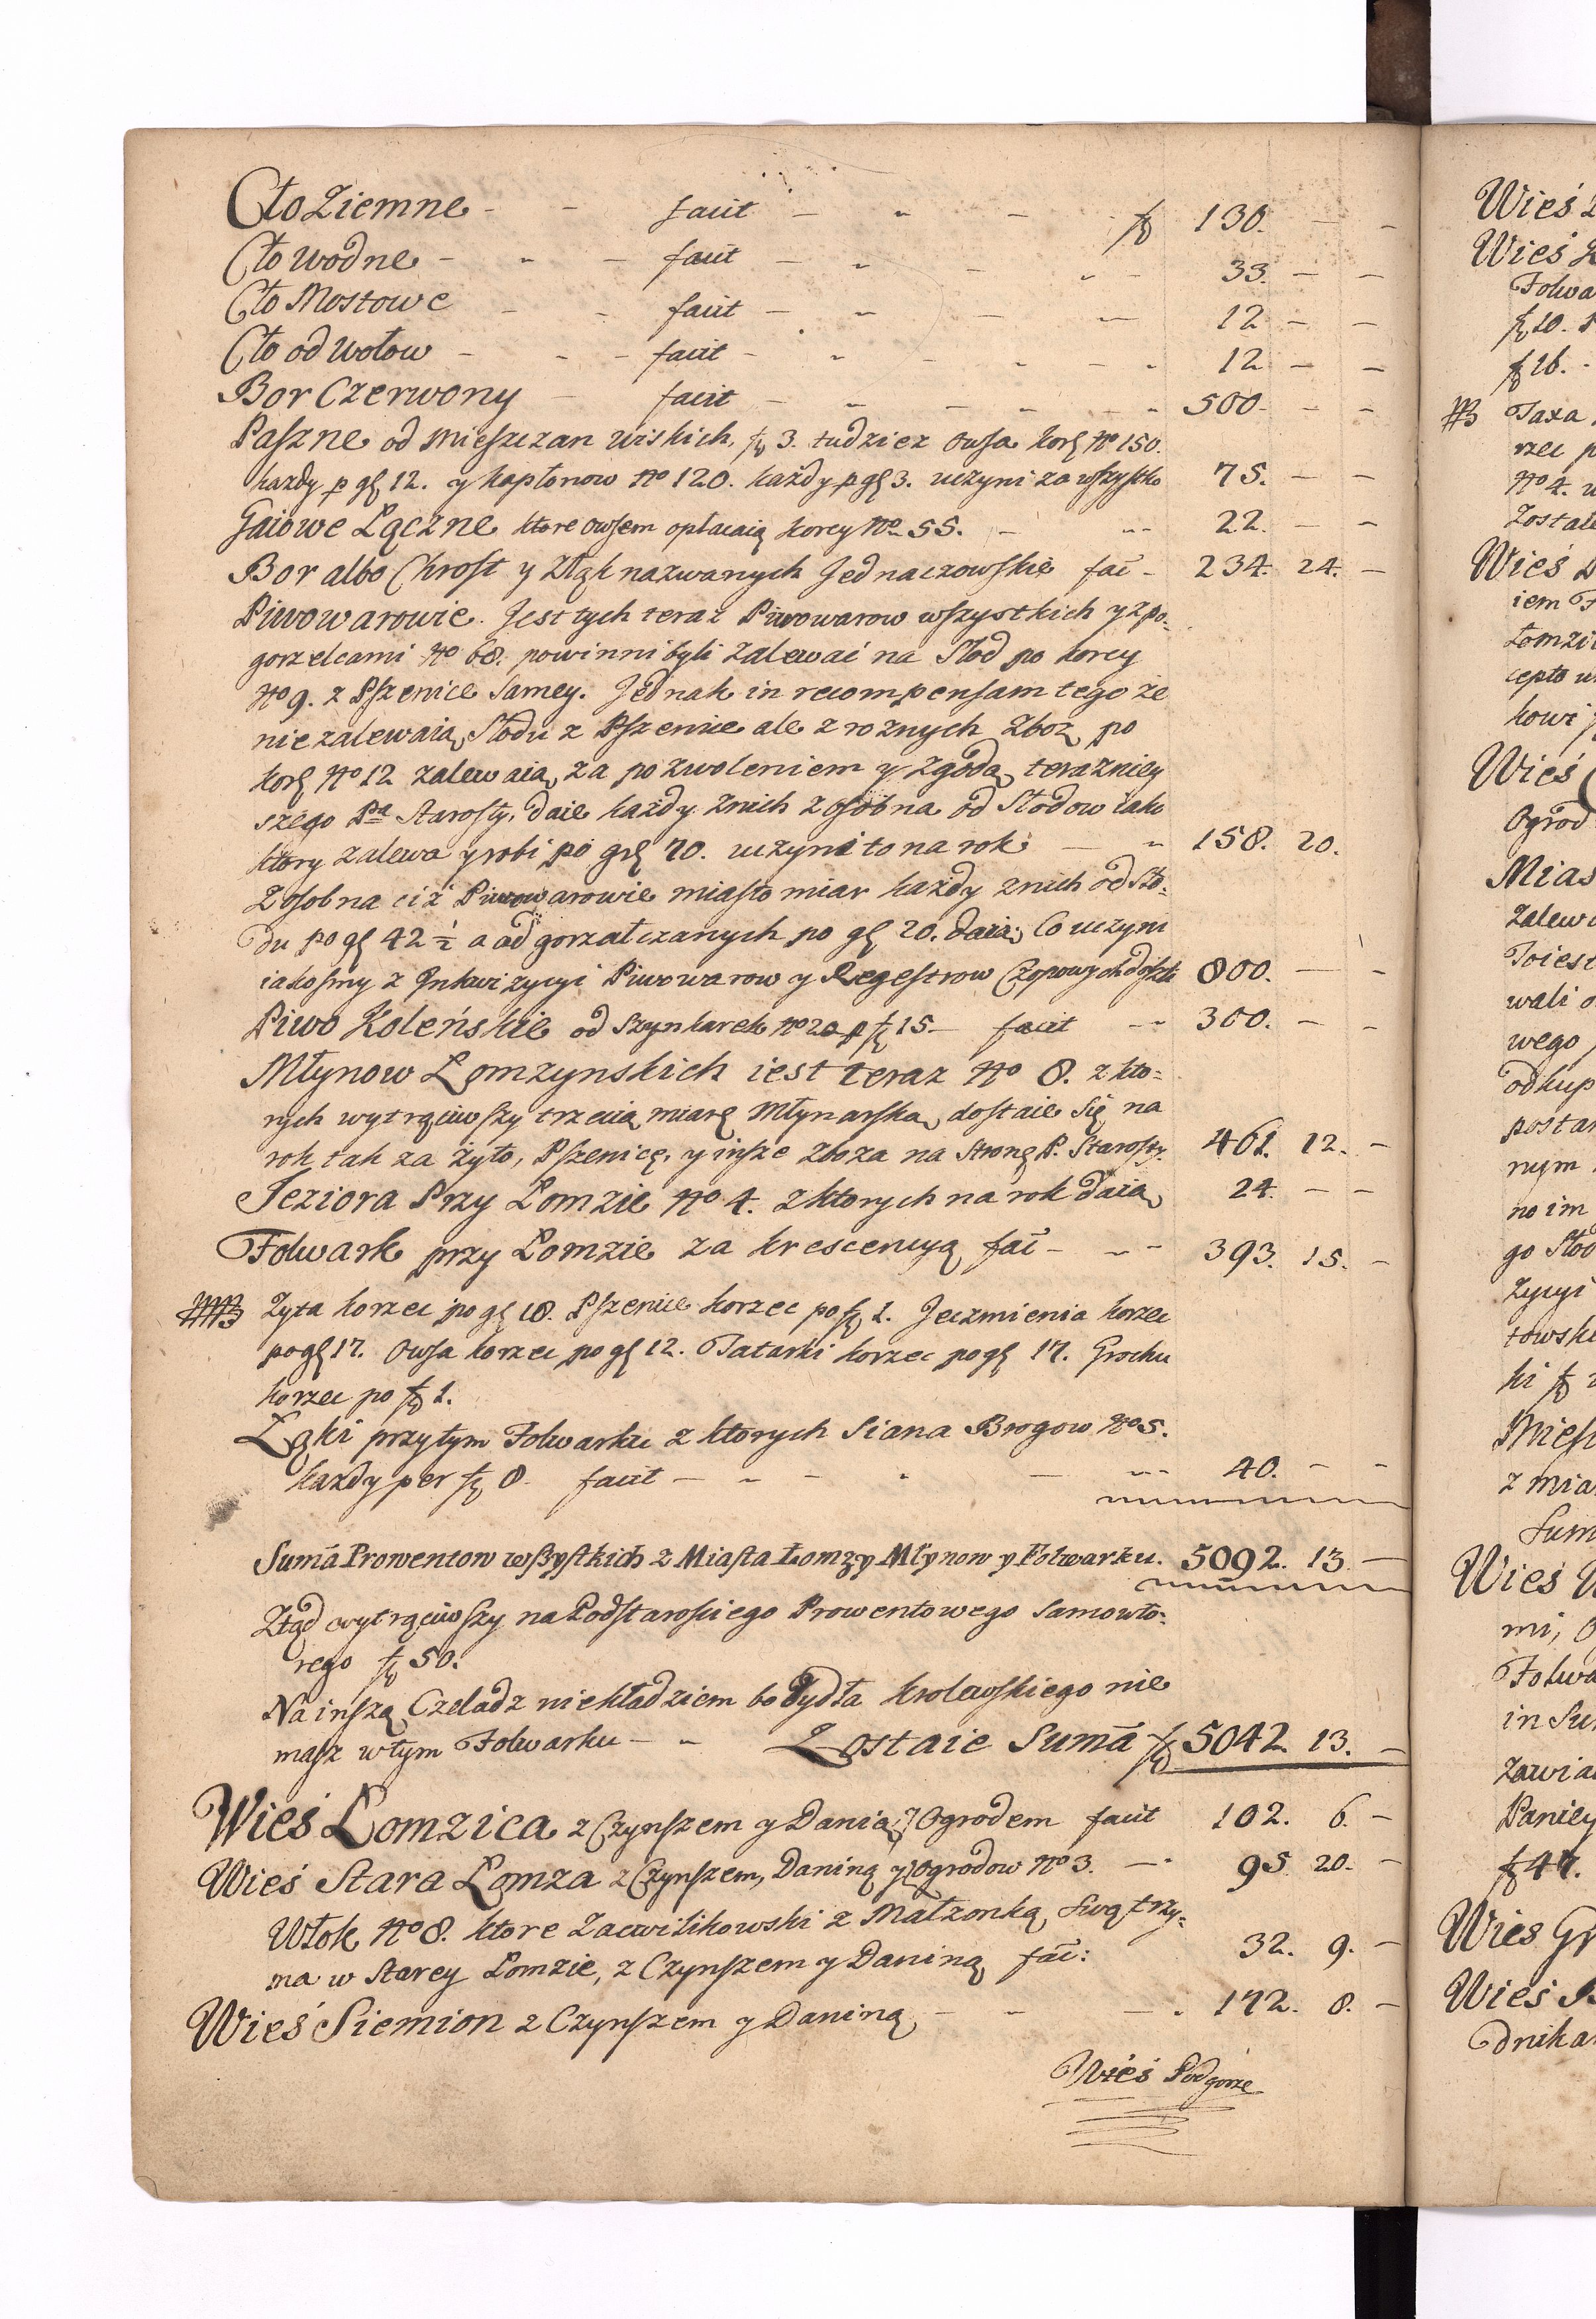 Cło Ziemne - - facit - - - - fl 130. - -
Cło wodne - - - facit - - - - - 33. - -
Cło Mostowe - - facit - - - - 12 - -
Cło od wołow - - - facit - - - - - - 12 - -
Bor Czerwony - facit - - - - - - 500. - -
Paszne od Mieszczan wiskich, fl 3. tudziez owsa korcy No 150.
kazdy p gl 12. y kapłonow No 120. każdy p gl 3. uczyni za wszystko 75. - -
Gaiowe Łączne ktore owsem opłacaią korcy No 55. - - 22. - -
Bor albo Chrost y Złąk nazwanych Jednaczowskie fac - 234. 24. -
Piwowarowie. Jest tych teraz Piwowarow wszystkich y z po-
gorzelcami No 68. powinni byli zalewać na Słod po korcy
No 9. z Pszenice samey. Jednak in recompensam tego ze
nie zalewaią Słodu z Pszenice ale z roznych Zboz po
korcy No 12 zalewaią za pozwoleniem y zgodą terazniey
szego Pa Starosty, daie każdy znich zosobna od Słodow iako
ktory zalewa y robi po grl 70. uczyni to na rok - - 158. 20.
Zosobna ciż Piwowarowie miasto miar każdy znich od Sło-
du po gl 42 1/2 a od gorzałczanych po gl 20. daią, Co uczyni
iakosmy z Inkwizycyi Piwowarow y Regestrow Czopowych doszli 800. - -
Piwo Koleńskie od szynkarek No 20 p fl 15 - facit - - 300. - -
Młynow Łomzynskich iest teraz No 8. z kto-
rych wytrąciwszy trzecią miarę Młynarską, dostaie się na
rok tak za żyto, Pszenicę, y insze Zboza na stronę P. Starosty. 461. 12. -
Jeziora Przy Łomzie No 4. z ktorych na rok daią 24. - -
Folwark przy Łomzie za krescencyą fac - - - 393. 15. -
Zyta korzec po gl 18. Pszenice korzec po fl 1. Jeczmienia korzec
po gl 17. Owsa korzec po gl 12. Tatarki korzec po gl 17. Grochu
korzec po fl 1.
Łąki przytym Folwarku z ktorych Siana Brogow No 5.
każdy per fl 8. facit - - - - - - 40. - -
Suma Prowentow wszystkich z Miasta Łomzy Młynow y Folwarku. 5092. 13 -
Ztąd wytrąciwszy na Podstarosciego Prowentowego samowto-
rego fl 50.
Na inszą Czeladz niekładziem bo Bydła krolewskiego nie
masz w tym Folwarku - - Zostaie Suma fl 5042. 13. -
Wieś Łomzica z Czynszem y Danią y Ogrodem facit 102. 6. -
Wieś Stara Łomza z Czynszem, Daniną y Ogrodow No 3. - - 95 20. -
Włok No 8. ktore Zacwilikowski z Małzonką swą trzy-
ma w Starey Łomzie, z Czynszem y Daniną fac: 32. 9. -
Wieś Siemion z Czynszem y Daniną - - - - 142. 8. -
Wieś Podgorze
Wieś
Wieś
Folwa
fl 10.
fl 16. -
Taxa
rzec p
No 4. u
Zostaie
Wieś
iem
Łomzi
cepto
kowi
Wieś
Ogrod
Mias
Zalewa
Toiest
wali o
wego
odkup
postan
nym
no im
go Słod
Zycyi
towski
ki fl
Miesz
z mia
Sum
Wies
mi,
Folwa
in Su
zawia
Paniey
fl 47.
Wies Gr
Wies
dnika